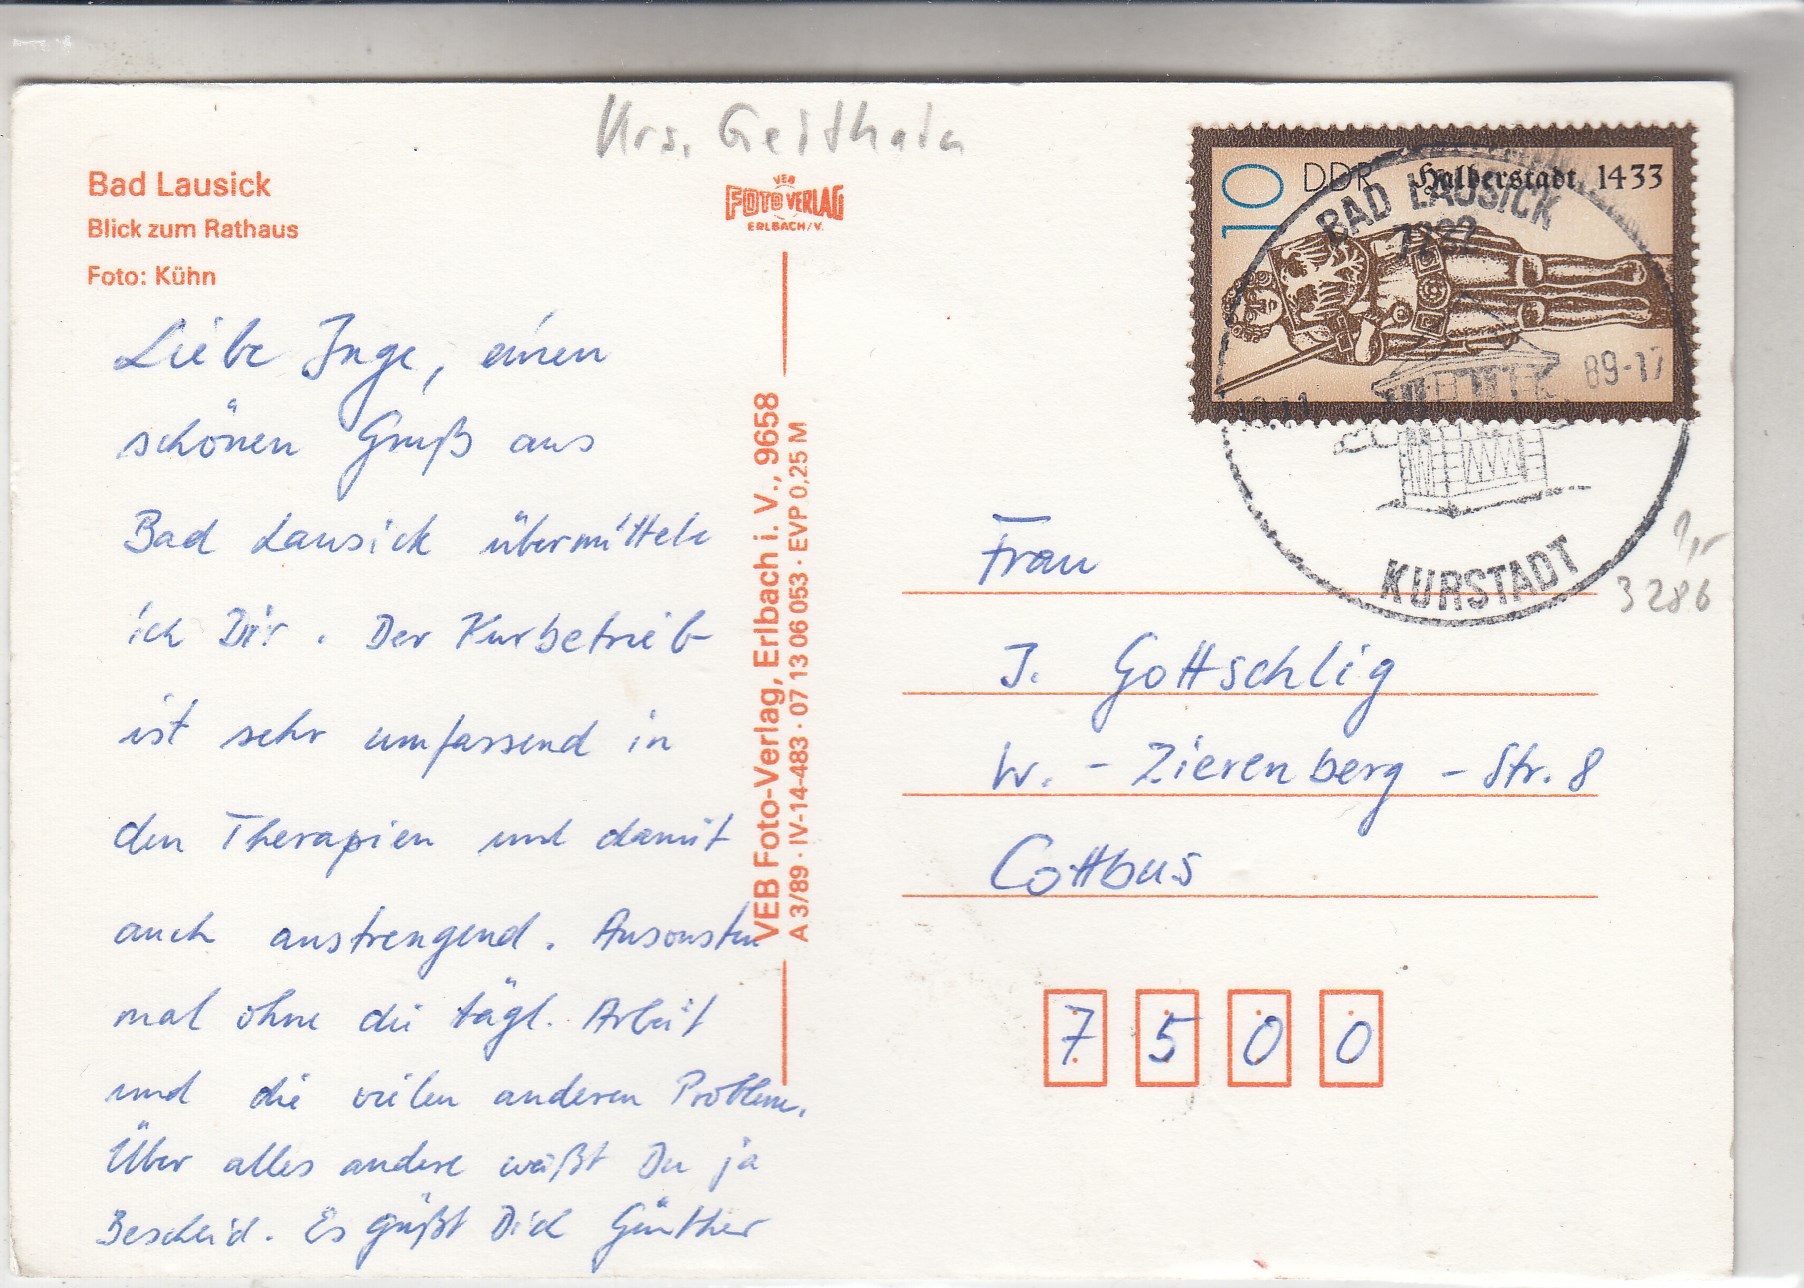 Krs. Geithain
Bad Lausick
Blick zum Rathaus
Foto: Kühn
VEB
FOTO VERLAG
ERLBACH/V.
10 DDR Halberstadt 1433
BAD LAUSICK
7282
89-17
KURSTADT
3286
Liebe Inge, einen
schönen Gruß aus
Bad Lausick übermittele
ich Dir. Der Kurbetrieb
ist sehr umfassend in
den Therapien und damit
auch anstrengend. Ansonsten
mal ohne die tägl. Arbeit
und die vielen anderen Probleme.
Über alles andere weißt Du ja
Bescheid. Es grüßt Dich Günther
VEB Foto-Verlag, Erlbach i. V., 9658
A 3/89 · IV-14-483 · 07 13 06 053 · EVP 0,25 M
Frau
I. Gottschlig
W.-Zierenberg-Str. 8
Cottbus
7500